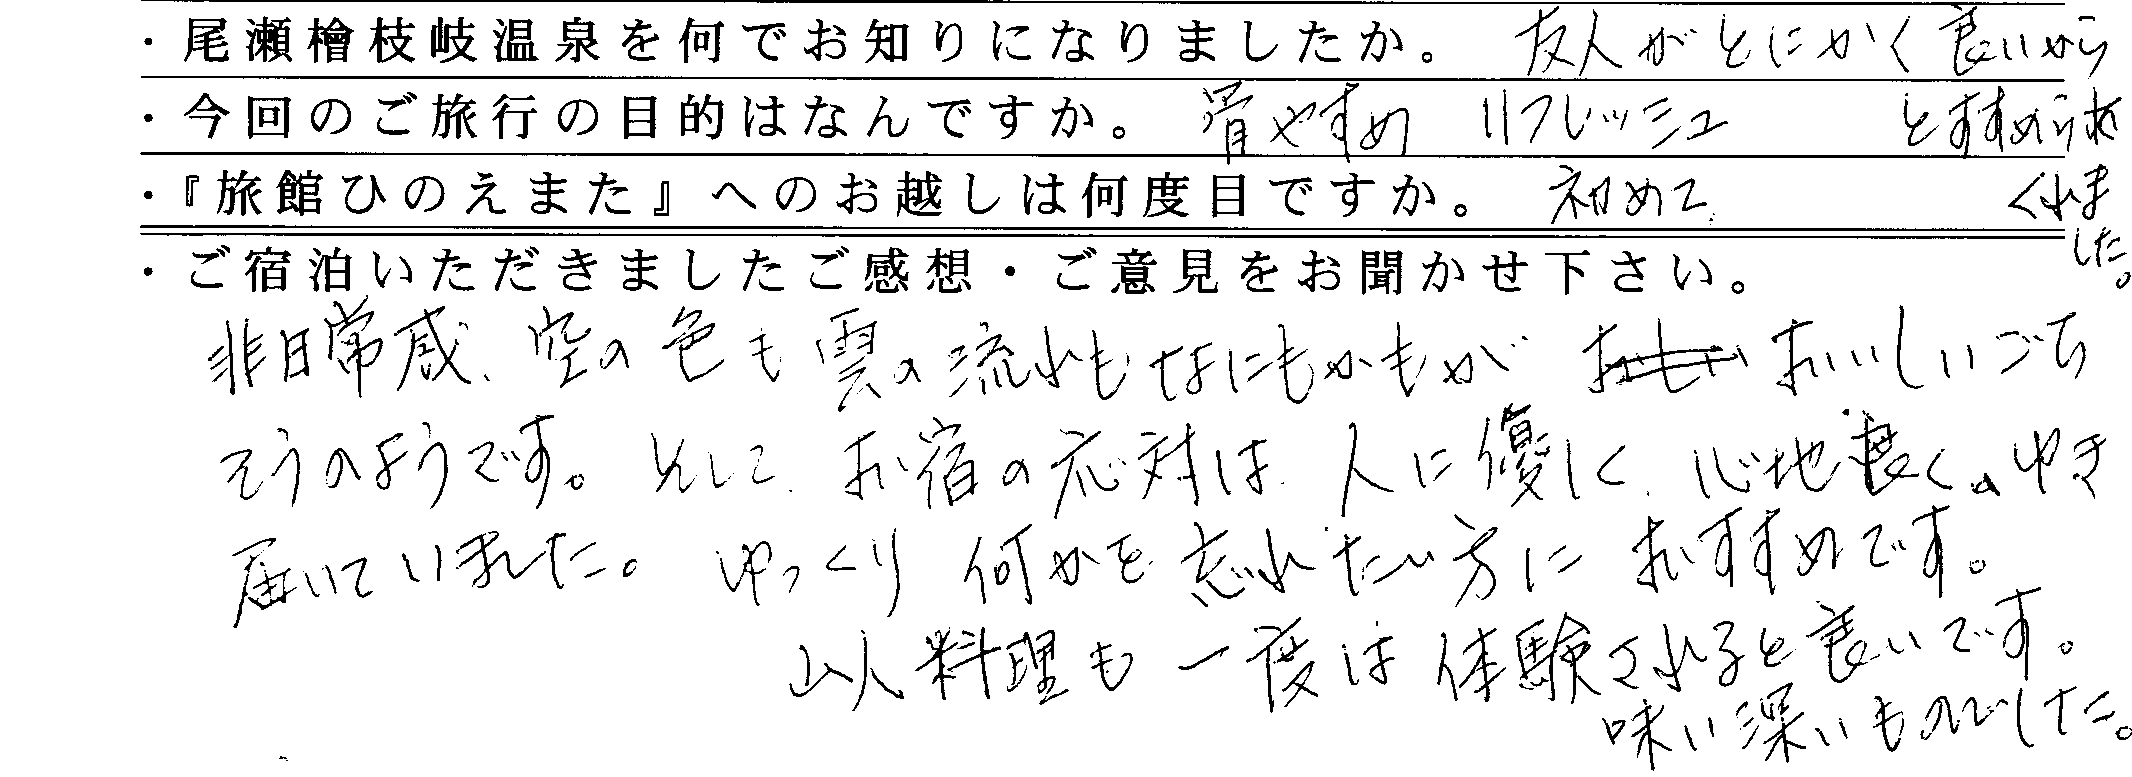 ・尾瀬檜枝岐温泉を何でお知りになりましたか。 友人がとにかく良いから
・今回のご旅行の目的はなんですか。 骨やすめ リフレッシュ とすすめられ
・『旅館ひのえまた』へのお越しは何度目ですか。 初めて. くれま
した。
・ご宿泊いただきましたご感想・ご意見をお聞かせ下さい。
非日常感、空の色も雲の流れもなにもかもが おいしいごち
そうのようです。そして、お宿の応対は、人に優しく、心地良く、ゆき
届いていました。ゆっくり何かを忘れたい方におすすめです。
山人料理も一度は体験されると良いです。
味い深いものでした。